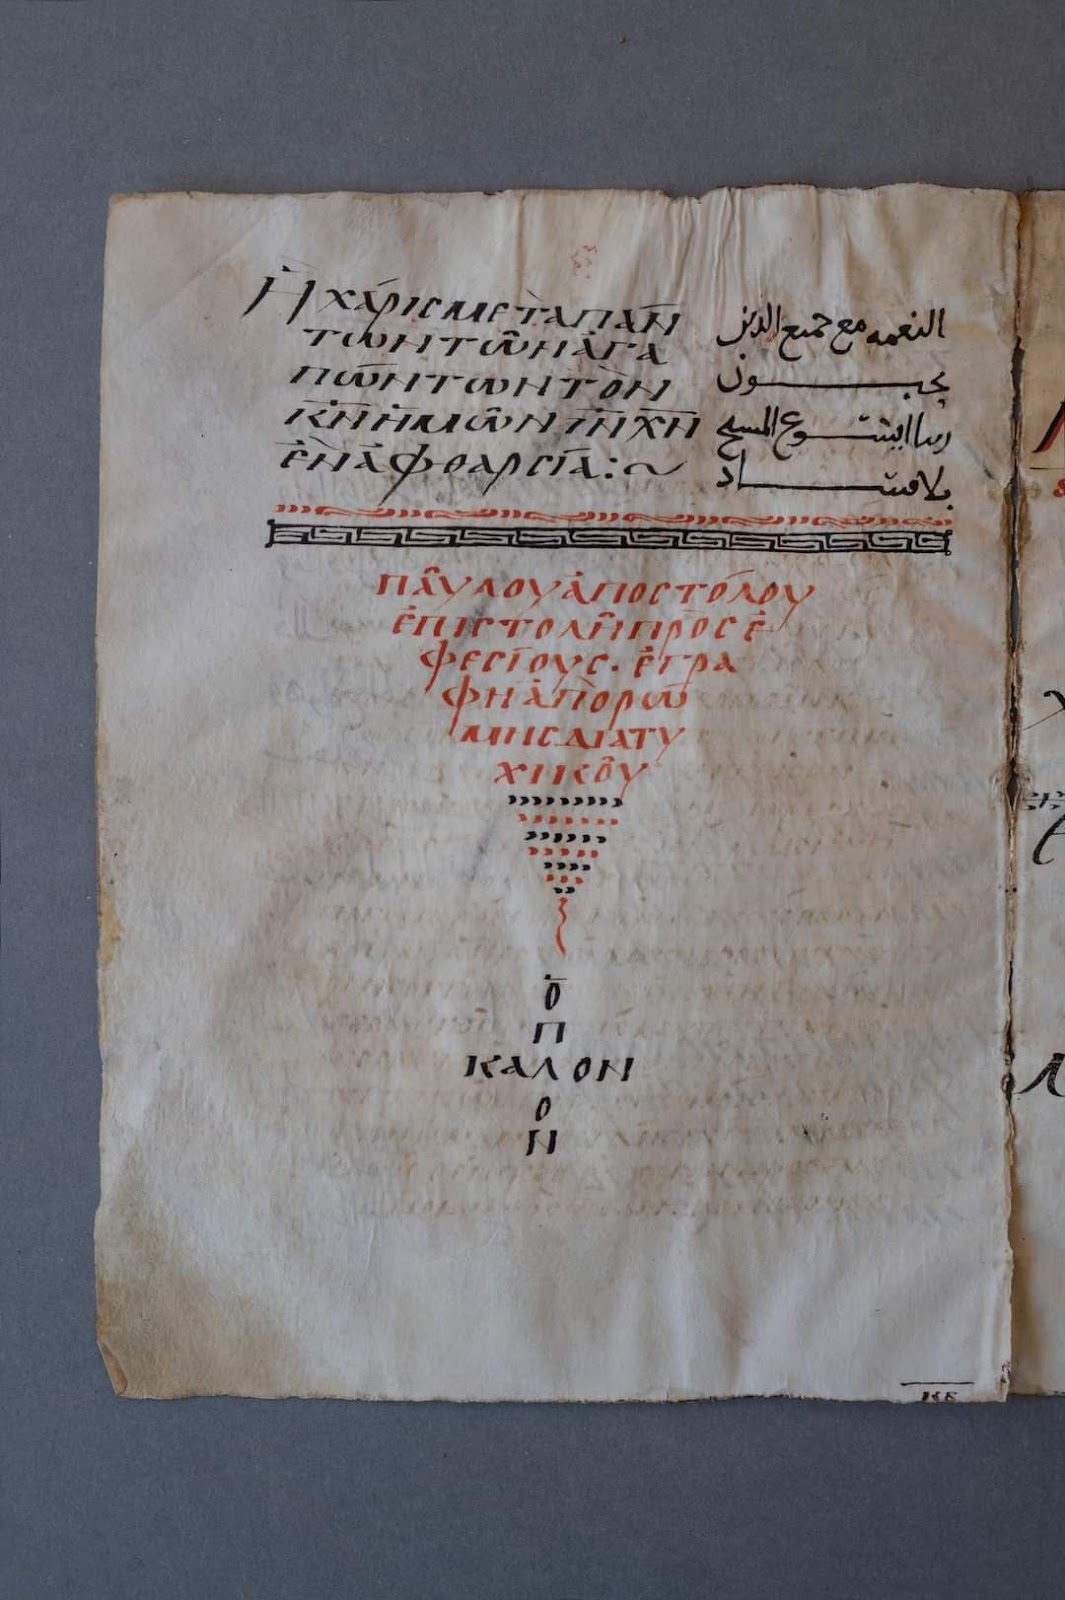 Ἡ χάρις μετὰ πάν
των τῶν ἀγα
πώντων τὸν
κ̅ν̅ ἡμῶν ι̅ν̅ χ̅ν̅
ἐν ἀφθαρσία :~
النعمه مع جميع الدين
يحبـــــون
ربنا ايشـــوع المسيح
بلا فســـــاد
παῦλου ἀποστόλου
ἐπιστολῆ πρὸς ἐ
φεσίους. ἐγρα
φη ἀπὸ ρώ
μης διατυ
χηκοῦ
ὁ
π
καλον
ο
ν